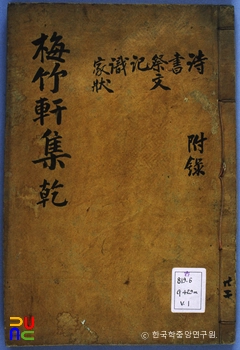 梅竹軒集 乾
詩
書
祭文
記
識
家狀
附錄
V.1
한국학중앙연구원